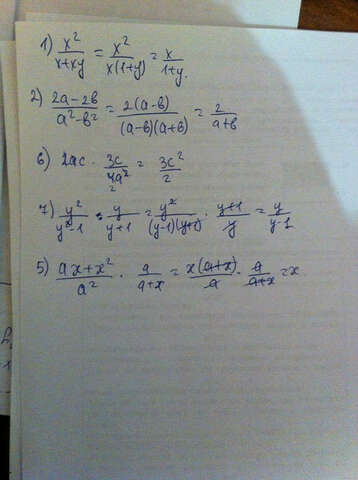 1) x²/(x+xy) = x²/(x(1+y)) = x/(1+y).
2) (2a-2b)/(a²-b²) = 2(a-b)/((a-b)(a+b)) = 2/(a+b)
6) 2ac · 3c/(4a²) = 3c²/2
7) y²/(y²-1) : y/(y+1) = y²/((y-1)(y+1)) · (y+1)/y = y/(y-1)
5) (ax+x²)/a² · a/(a+x) = x(a+x)/a · a/(a+x) = x